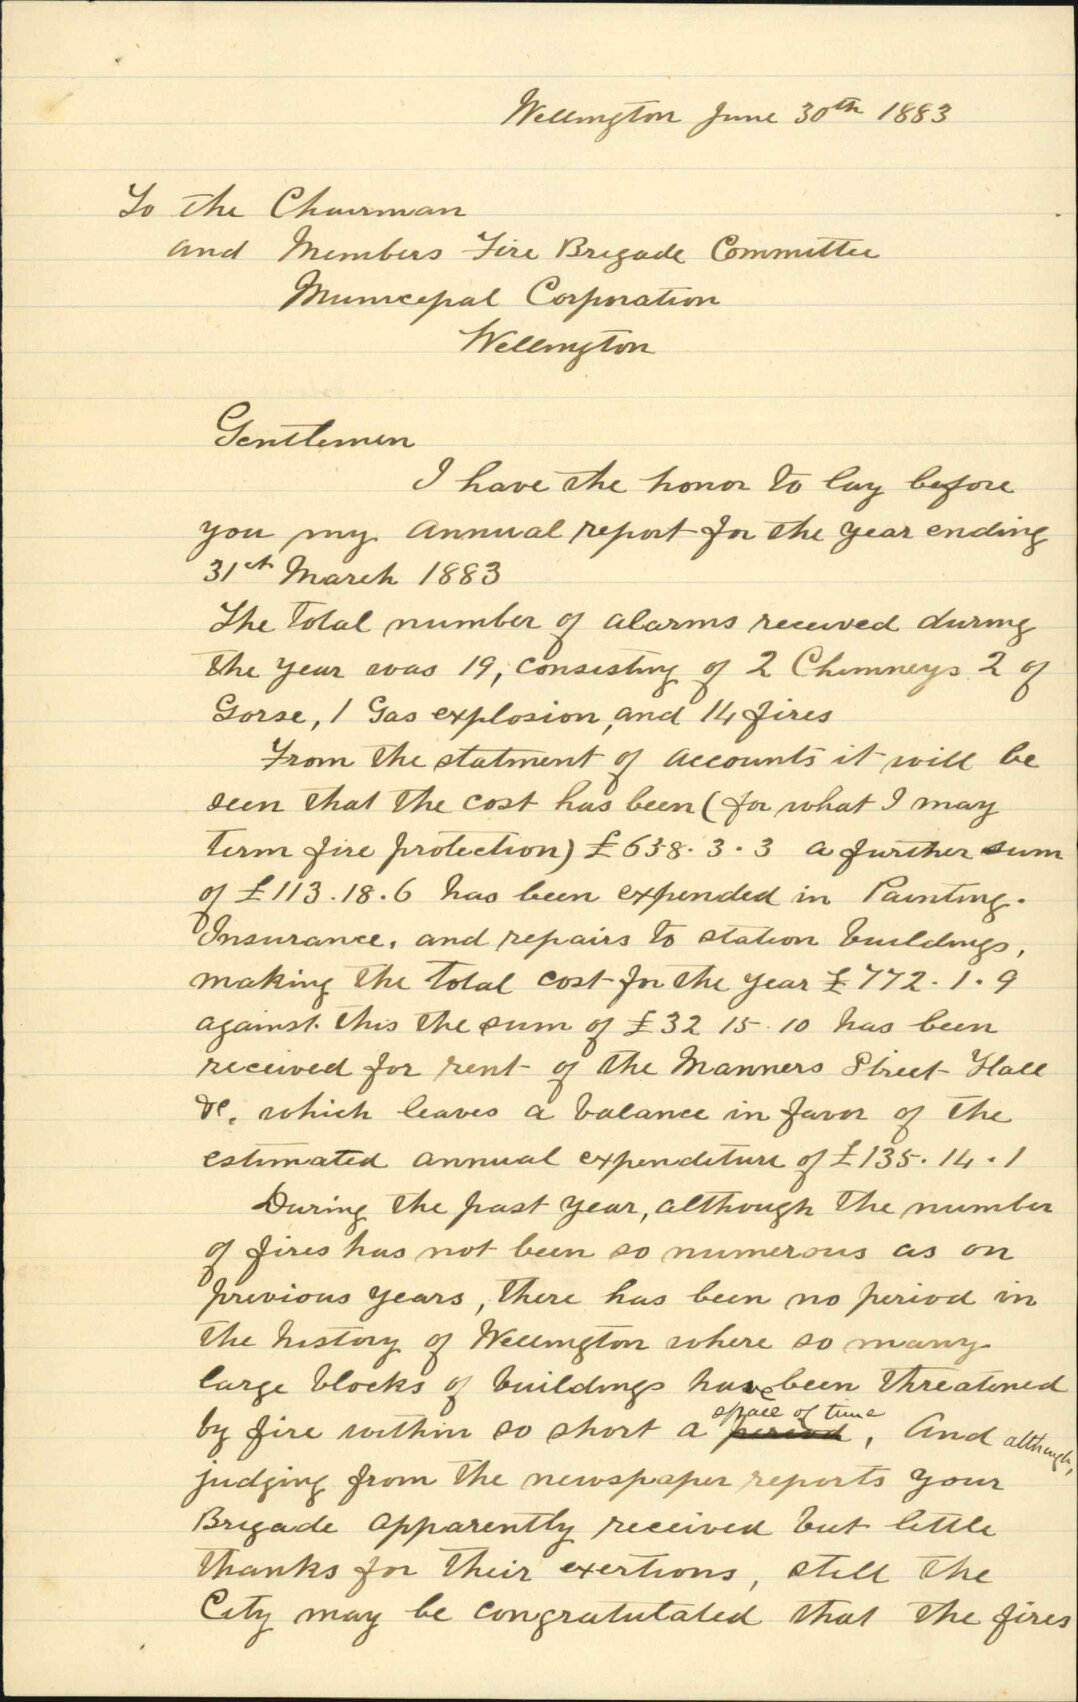 Wellington June 30th 1883
To the Chairman
and Members Fire Brigade Committee
Municipal Corporation
Wellington
Gentlemen
I have the honor to lay before
you my annual report for the year ending
31st March 1883
The total number of alarms received during
the year was 19, consisting of 2 Chimneys 2 of
Gorse, 1 Gas explosion, and 14 fires
From the statment of accounts it will be
seen that the cost has been (for what I may
term fire protection) £658.3.3 a further sum
of £113.18.6 has been expended in Painting.
Insurance, and repairs to station buildings,
making the total cost for the year £772.1.9
against this the sum of £32 15.10 has been
received for rent of the Manners Street Hall
&c, which leaves a balance in favor of the
estimated annual expenditure of £135.14.1
During the past year, although the number
of fires has not been so numerous as on
previous years, there has been no period in
the history of Wellington where so many
large blocks of buildings have been threatened
by fire within so short a period space of time, And although,
judging from the newspaper reports your
Brigade apparently received but little
thanks for their exertions, still the
City may be congratulated that the fires